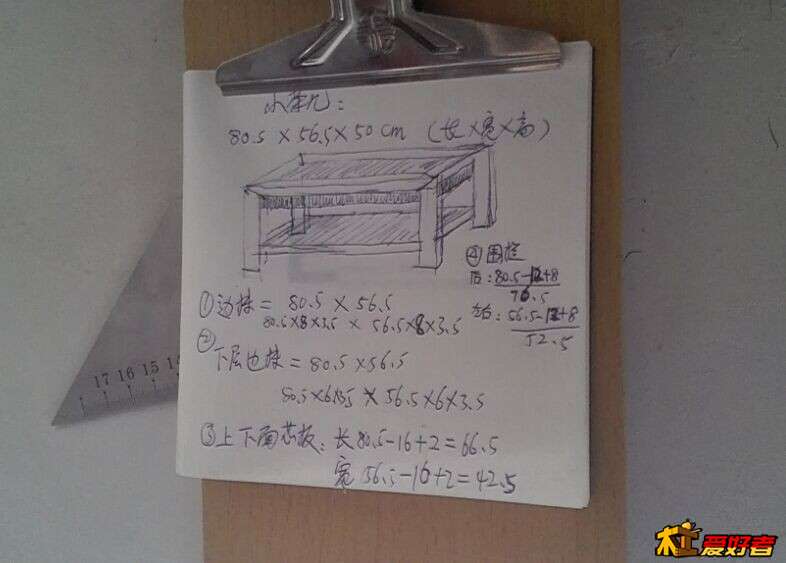 小茶几:
80.5 × 56.5 × 50 cm (长×宽×高)
④围栏
后: 80.5-12+8
76.5
左右: 56.5-12+8
52.5
①边抹 = 80.5 × 56.5
80.5×8×3.5 × 56.5×8×3.5
②
下层边抹 = 80.5 × 56.5
80.5×6×3.5 × 56.5×6×3.5
③上下面芯板: 长 80.5-16+2=66.5
宽 56.5-16+2=42.5
17 16 15 14
木工爱好者